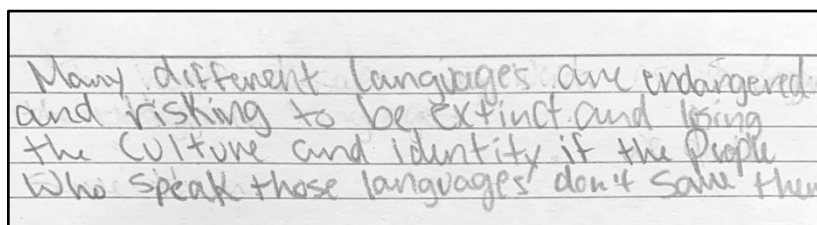 Many different languages are endangered
and risking to be extinct and losing
the culture and identity if the People
Who speak those languages don't save them